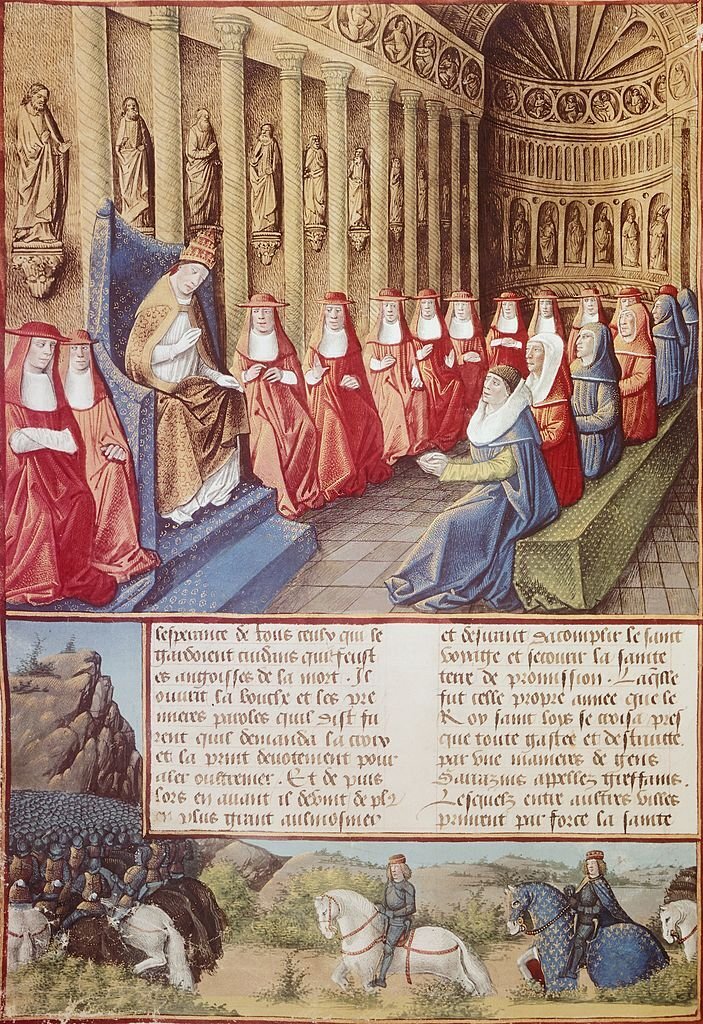 lesperance de tous ceulx qui le
gardoient cuidans qui feust
es angoisses de la mort. Il
ouurit la bouche et les pre
mieres paroles quil dist fu
rent quil demanda la croix
et la print deuotement pour
aler oultremer. Et de puis
lors en auant il deuint de pl9
en plus grant aulmosnier
et desirant dacomplir le saint
voyage et secourir la sainte
terre de promission. Laq̃lle
fut celle propre annee que le
Roy saint loys se croisa pres
que toute gastee et destruitte.
par vne maniere de gens
Sarazins appellez greffains.
Lesquelz entre aultres villes
prinrent par force la sainte